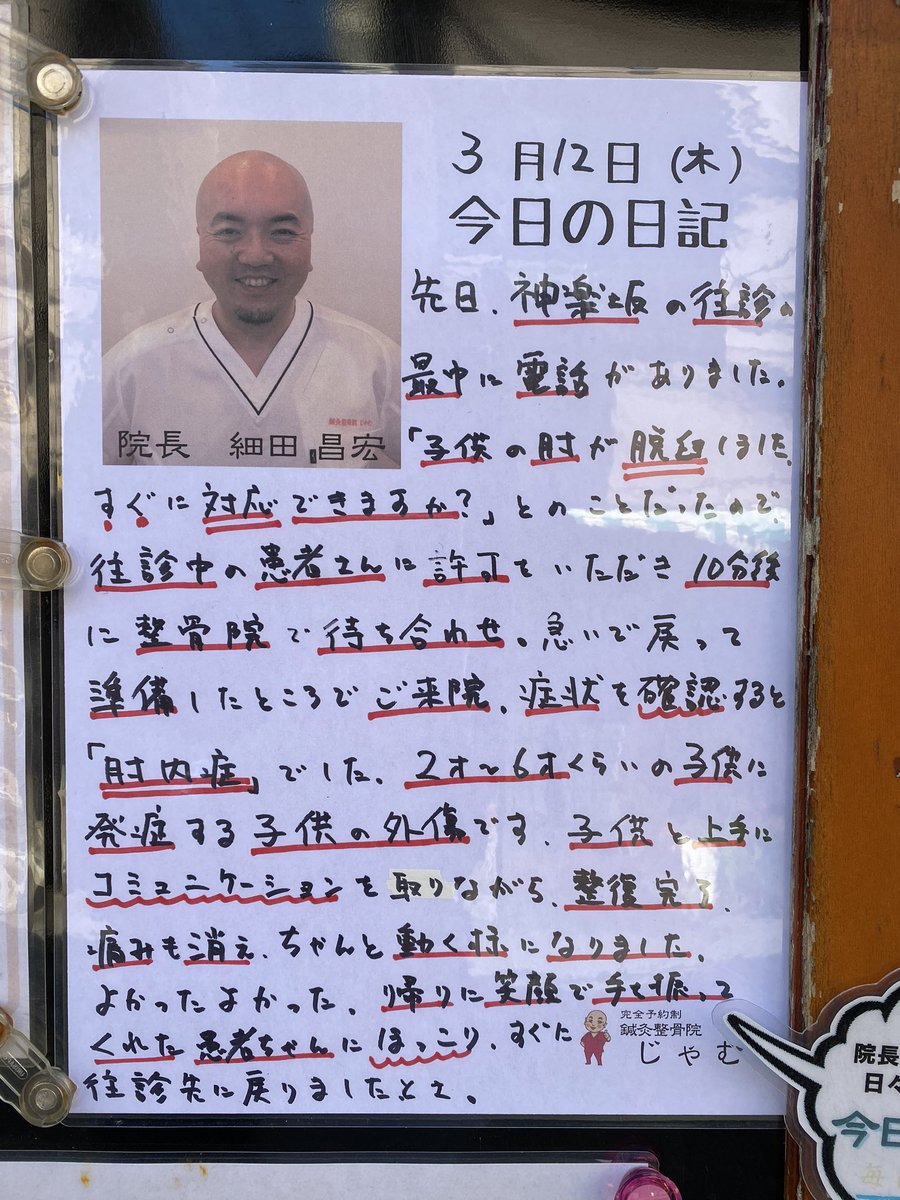 3月12日(木)
今日の日記
先日、神楽坂の往診の
最中に電話がありました。
「子供の肘が脱臼しました、
すぐに対応できますか?」とのことだったので、
往診中の患者さんに許可をいただき10分後
に整骨院で待ち合わせ。急いで戻って
準備したところでご来院。症状を確認すると
「肘内症」でした。2才〜6才くらいの子供に
発症する子供の外傷です。子供と上手に
コミュニケーションを取りながら、整復完了。
痛みも消え、ちゃんと動く様になりました。
よかったよかった。帰りに笑顔で手を振って
くれた患者ちゃんにほっこり、すぐに
往診先に戻りましたとさ。
院長 細田 昌宏
完全予約制
鍼灸整骨院
じゃむ
院長
日々
今日
毎